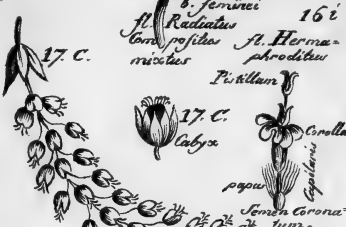 b. feminei
fl. Radiatus
Compositus
mixtus
16 i
fl. Herma=
phroditus
17. C.
17. C.
Calyx
Pistillum
Corolla
papus
Capilaris
Semen Corona=
tum